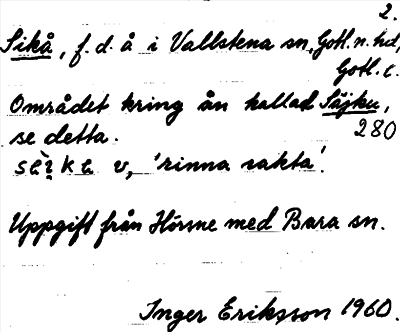 2.
Sikå, f.d. å i Vallstena sn, Gotl. n. hd,
Gotl. l.
Området kring ån kallad Säjku,
se detta. 280
v, 'rinna sakta'.
Uppgift från Hörsne med Bara sn.
Inger Eriksson 1960.